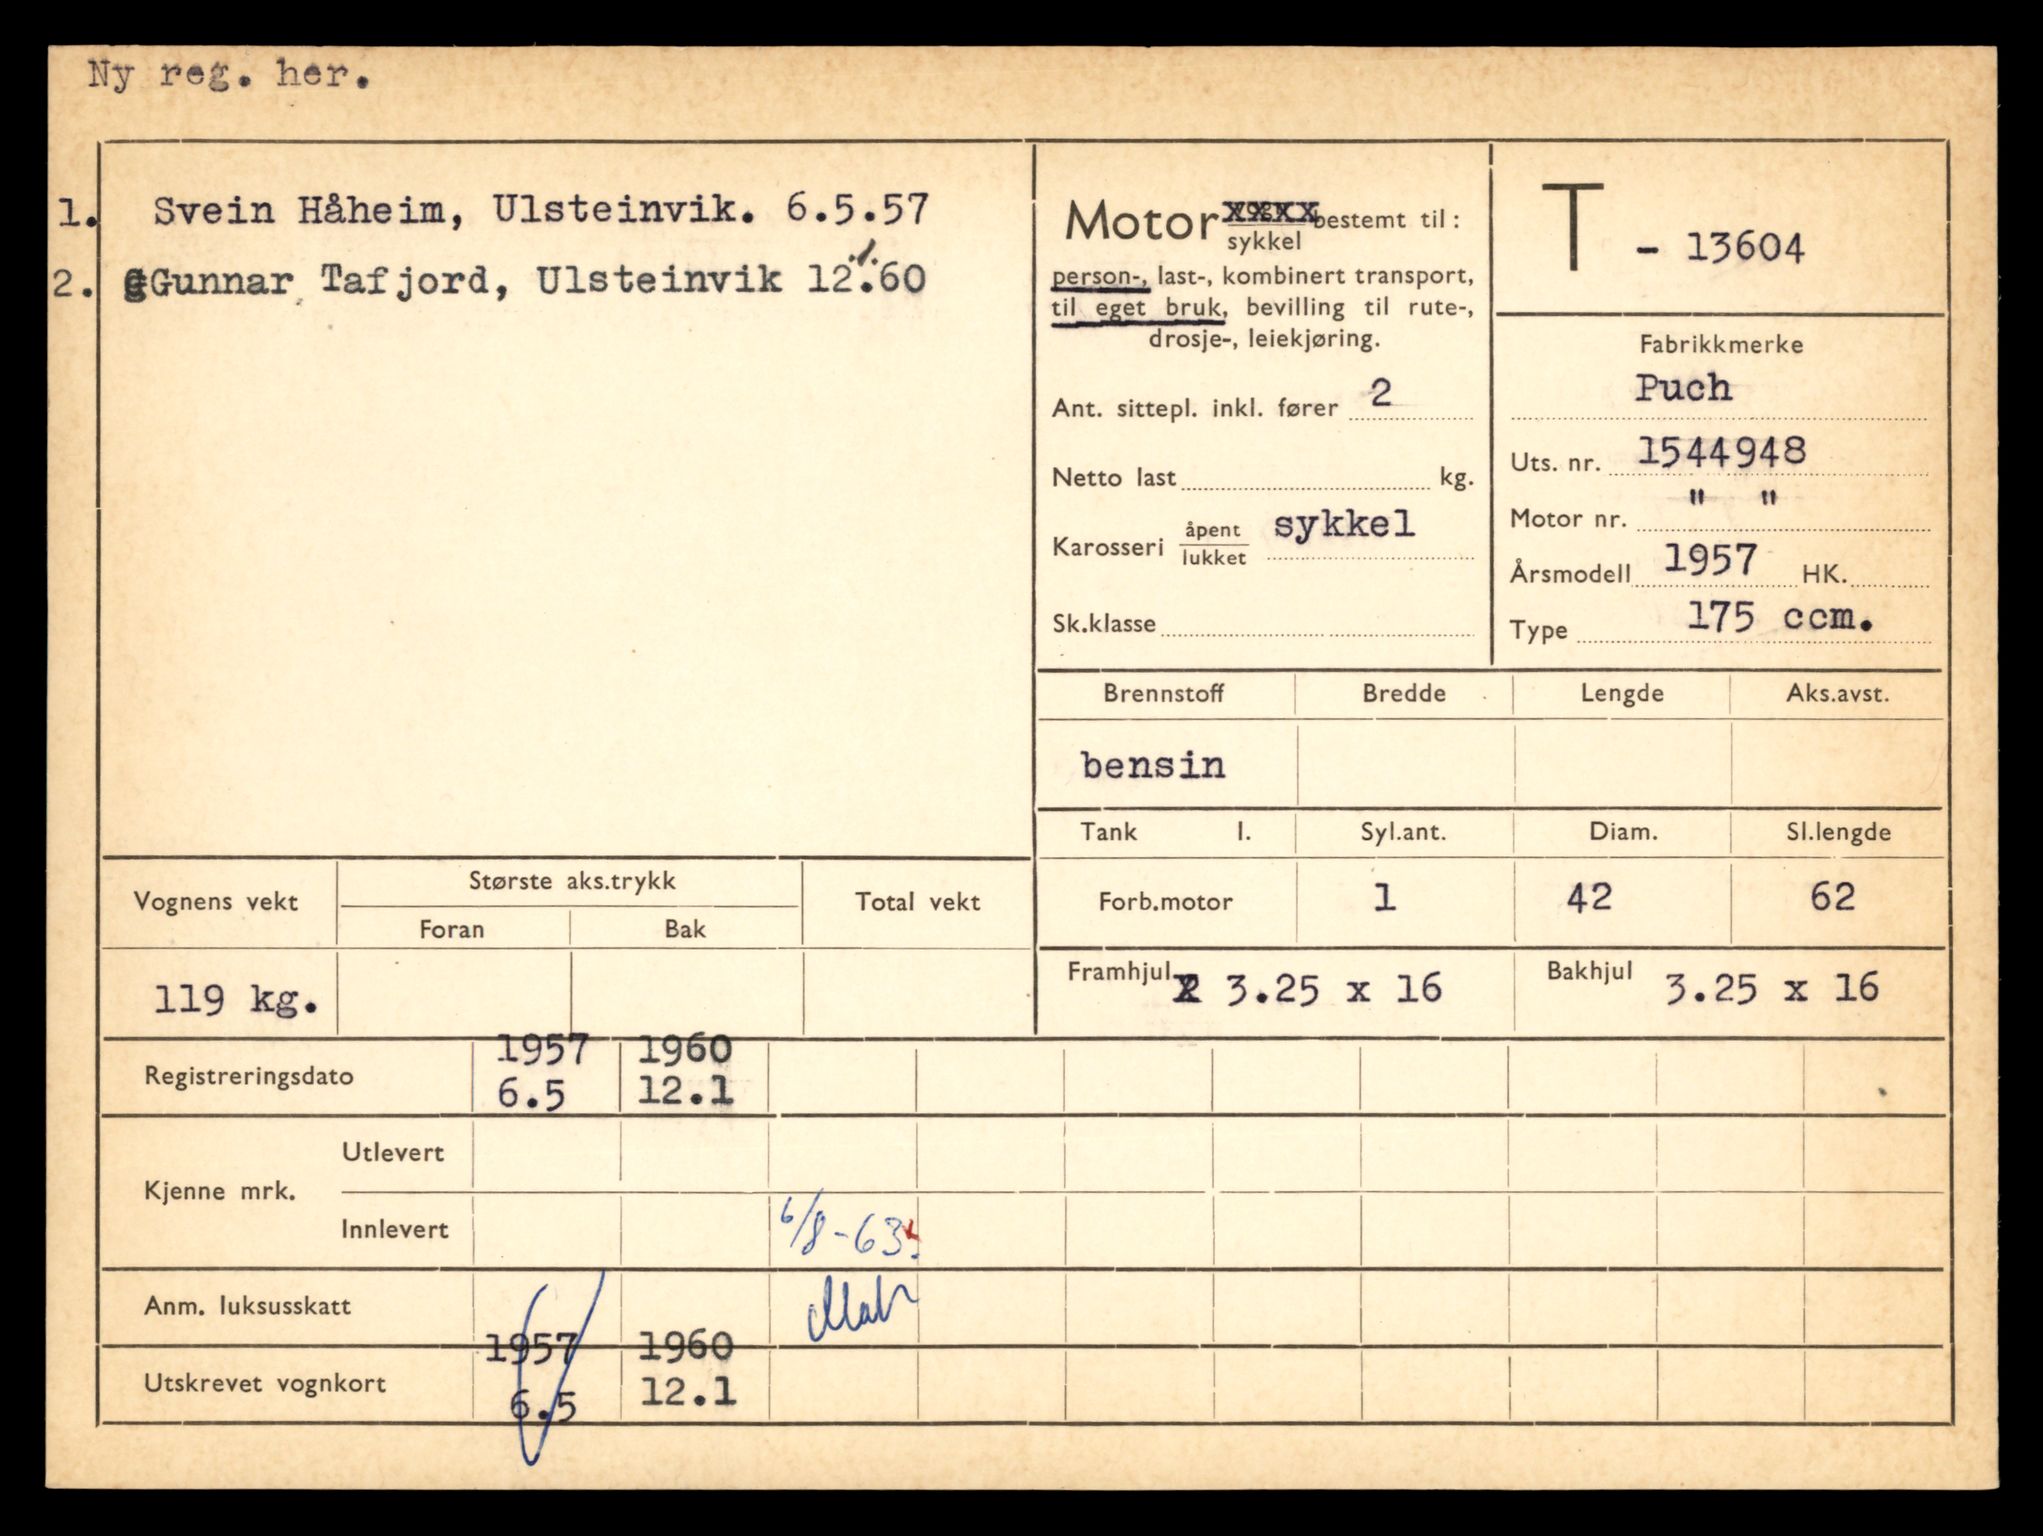 Ny reg. her.
1. Svein Håheim, Ulsteinvik. 6.5.57
2. Gunnar Tafjord, Ulsteinvik 12.1.60
Motor xxxx bestemt til:
sykkel
person-, last-, kombinert transport,
til eget bruk, bevilling til rute-,
drosje-, leiekjøring.
Ant. sittepl. inkl. fører 2
Netto last kg.
Karosseri åpent sykkel
lukket
Sk.klasse
T - 13604
Fabrikkmerke
Puch
Uts. nr. 1544948
Motor nr. " "
Årsmodell 1957 HK.
Type 175 ccm.
Brennstoff Bredde Lengde Aks.avst.
bensin
Tank l. Syl.ant. Diam. Sl.lengde
Forb.motor 1 42 62
Framhjul 3.25 x 16 Bakhjul 3.25 x 16
Vognens vekt Største aks.trykk Total vekt
Foran Bak
119 kg.
1957 1960
Registreringsdato
6.5 12.1
Utlevert
Kjenne mrk.
Innlevert 6/8-63.
Anm. luksusskatt
1957 1960
Utskrevet vognkort
6.5 12.1